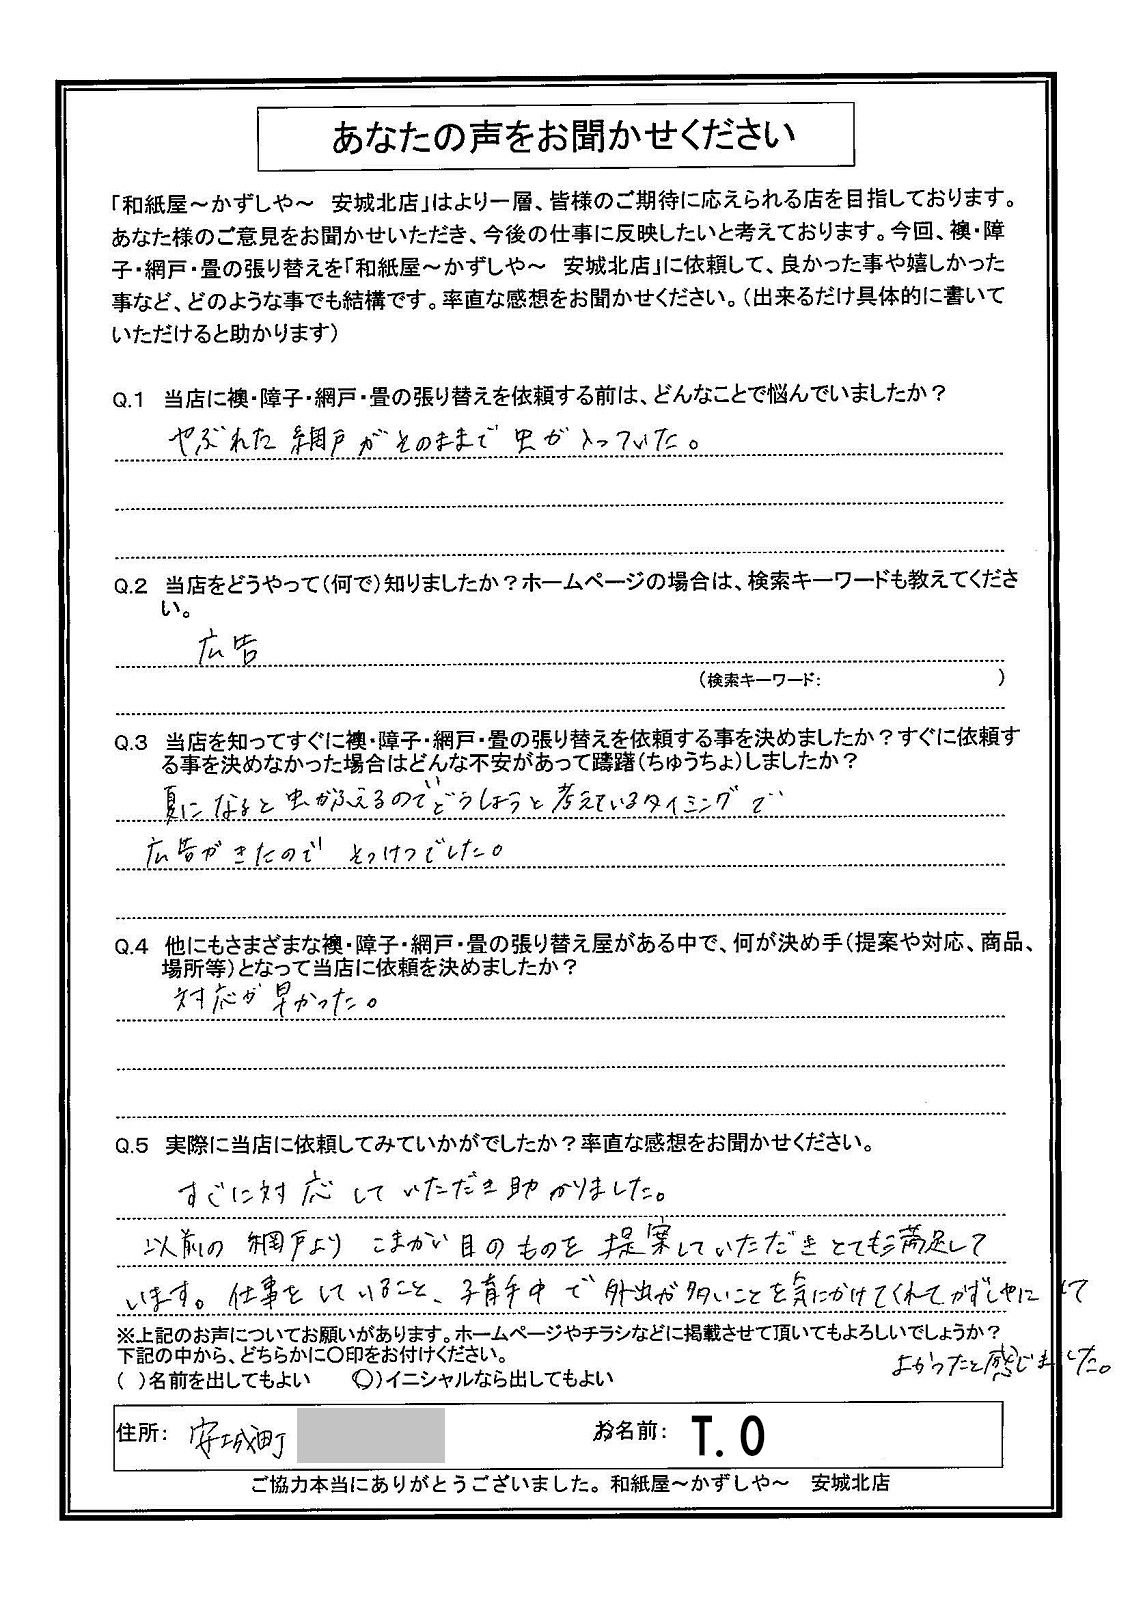 あなたの声をお聞かせください
「和紙屋～かずしや～　安城北店」はより一層、皆様のご期待に応えられる店を目指しております。
あなた様のご意見をお聞かせいただき、今後の仕事に反映したいと考えております。今回、襖・障
子・網戸・畳の張り替えを「和紙屋～かずしや～　安城北店」に依頼して、良かった事や嬉しかった
事など、どのような事でも結構です。率直な感想をお聞かせください。（出来るだけ具体的に書いて
いただけると助かります）
Q.1　当店に襖・障子・網戸・畳の張り替えを依頼する前は、どんなことで悩んでいましたか？
やぶれた網戸がそのままで虫が入っていた。
Q.2　当店をどうやって（何で）知りましたか？ホームページの場合は、検索キーワードも教えてくださ
い。
広告
（検索キーワード：　　　　　　　　　　）
Q.3　当店を知ってすぐに襖・障子・網戸・畳の張り替えを依頼する事を決めましたか？すぐに依頼す
る事を決めなかった場合はどんな不安があって躊躇（ちゅうちょ）しましたか？
夏になると虫がふえるのでどうしようと考えているタイミングで
広告がきたので そっけつでした。
Q.4　他にもさまざまな襖・障子・網戸・畳の張り替え屋がある中で、何が決め手（提案や対応、商品、
場所等）となって当店に依頼を決めましたか？
対応が早かった。
Q.5　実際に当店に依頼してみていかがでしたか？率直な感想をお聞かせください。
すぐに対応していただき助かりました。
以前の網戸より こまかい目のものを提案していただきとても満足して
います。仕事をしていること、子育手中で外出が多いことを気にかけてくれてかずしやにして
よかったと感じました。
※上記のお声についてお願いがあります。ホームページやチラシなどに掲載させて頂いてもよろしいでしょうか？
下記の中から、どちらかに〇印をお付けください。
（　）名前を出してもよい　　（〇）イニシャルなら出してもよい
住所：　安城町　　お名前：　T.O
ご協力本当にありがとうございました。和紙屋～かずしや～　安城北店